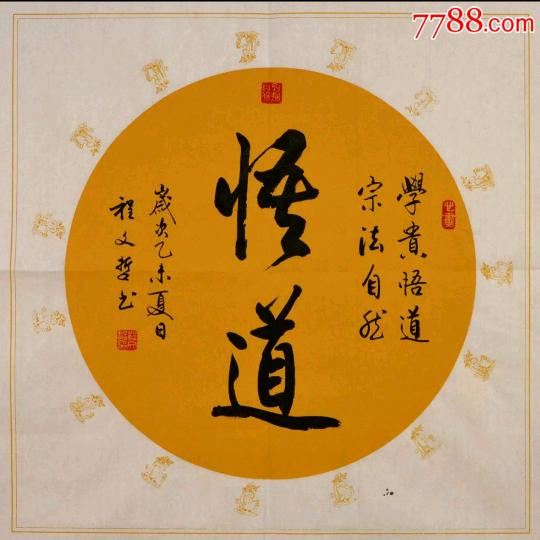 7788.com
學貴悟道
宗法自然
悟道
歲次乙未夏日
程文哲书